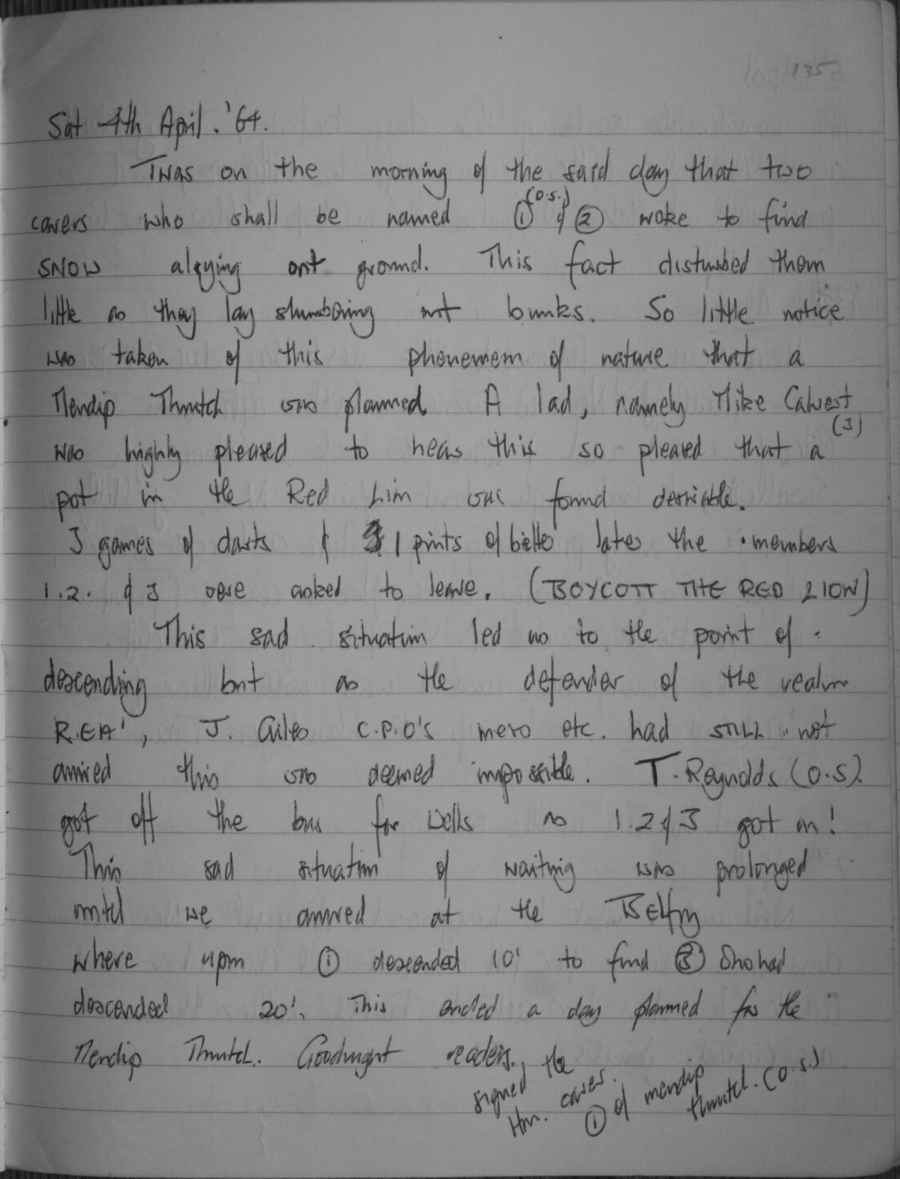 135
Sat 4th April. '64.
Twas on the morning of the said day that two
(o.s.)
cavers who shall be named ① & ② woke to find
SNOW alaying ont ground. This fact disturbed them
little as they lay slumbering ont bunks. So little notice
was taken of this phonemem of nature that a
Mendip Thrutch was planned. A lad, namely Mike Calvert
(3)
was highly pleased to hear this so pleased that a
pot in the Red Lion was found desirable.
3 games of darts & 1 pints of bitto later the members
1.2. & 3 were asked to leave. (BOYCOTT THE RED LION)
This sad situation led us to the point of
descending but as the defender of the realm
J. Giles C.P.O's mero etc. had STILL not
arrived this was deemed impossible. T. Reynolds (O.S).
got off the bus for Wells as 1.2 & 3 got on!
This sad situation of waiting was prolonged
until we arrived at the Belfry
where upon ① descended 10' to find ③ had
descended 20'. This ended a day planned for the
Mendip Thrutch. Goodnight readers.
signed the
Hon. caver.
① of mendip
thrutch. (o.s.)